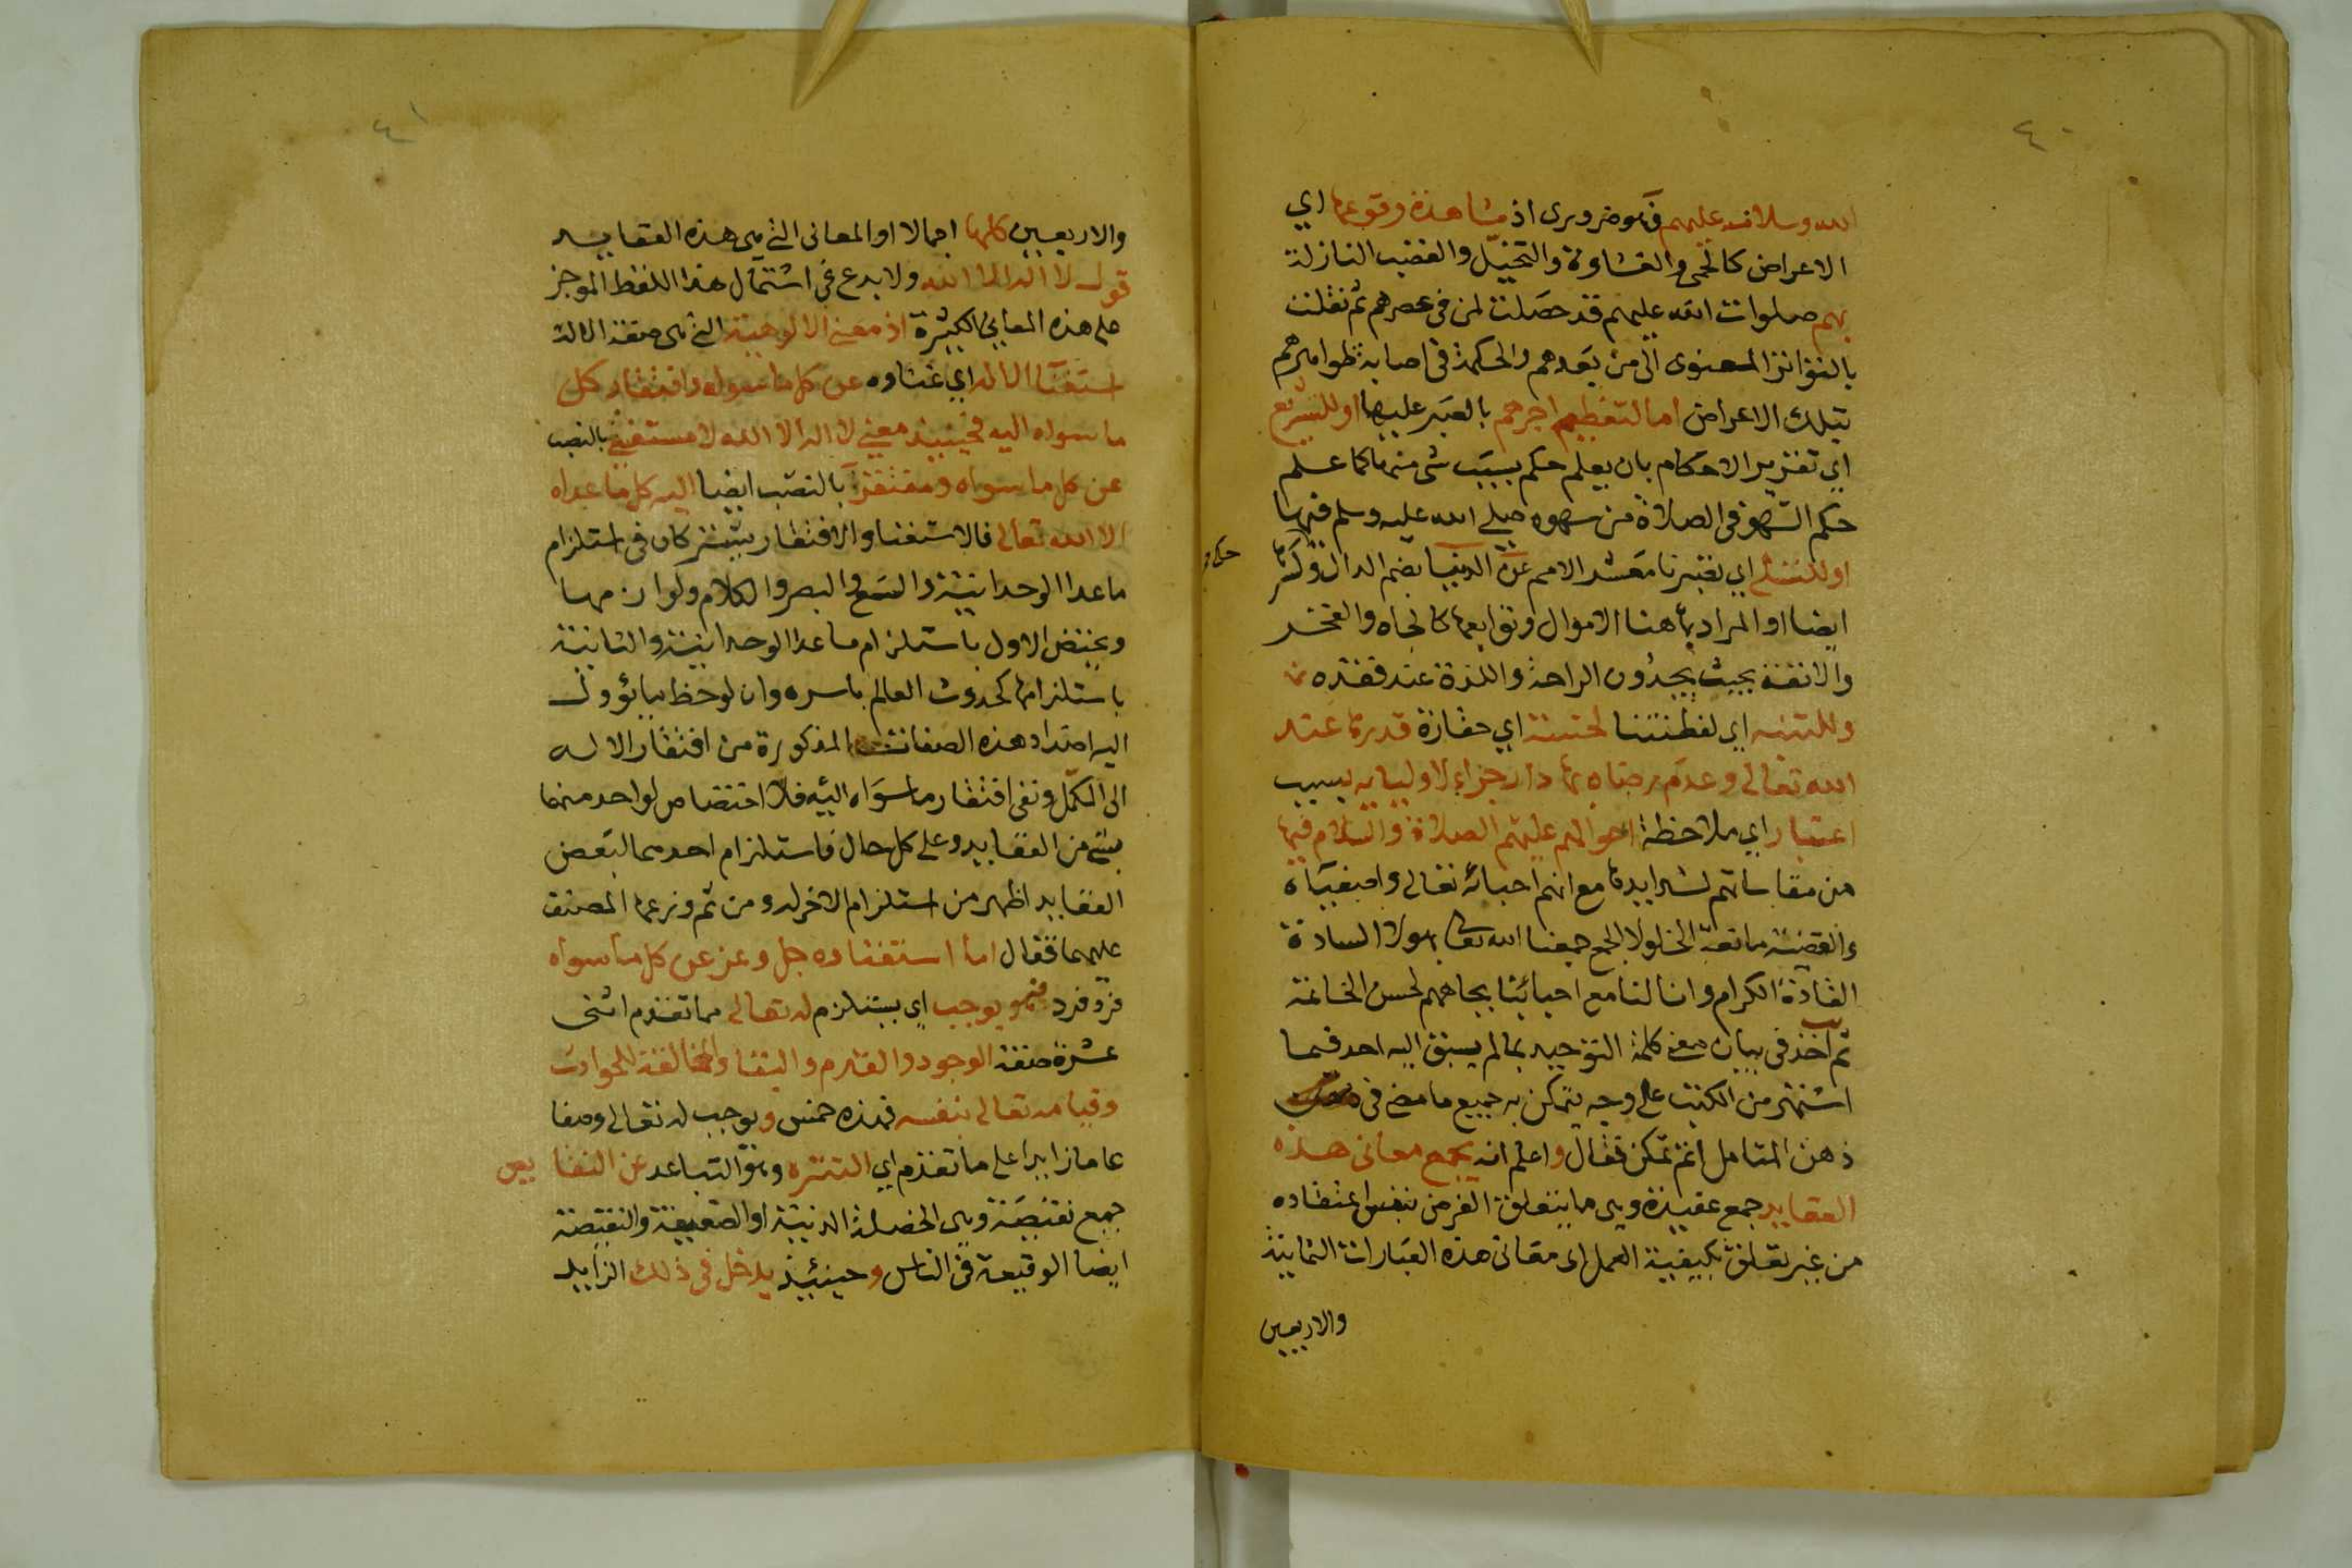 ٤٠
الله وسلامه عليهم فهو ضروري اذ مشاهدة وقوعها اي
الاعراض كالحمى والغشاوة والتخيل والغضب النازلة
بهم صلوات الله عليهم قد حصلت لمن في عصرهم ثم نقلت
بالتواتر المعنوى الى من بعدهم والحكمة في اصابة ظواهرهم
بتلك الاعراض اما لتعظيم اجرهم بالصبر عليها او للتشريع
اي تقرير الاحكام بان يعلم حكم بسبب شى منها كما علم
حكم السهو في الصلاة من سهوه صلى الله عليه وسلم فيها
او للتسلي اي تصبرنا معشر الامم عن الدنيا بضم الدال وكسرها
حكي
ايضا او المراد بها هنا الاموال وتوابعها كالجاه والفخر
والانفة بحيث يجدون الراحة واللذة عند فقده
وللتنبه اي لفطنتنا لخسة اي حقارة قدرها عند
الله تعالى وعدم رضاه بها دار جزاء لاوليايه بسبب
اعتبار اي ملاحظة احوالهم عليهم الصلاة والسلام فيها
من مقاساتهم لشدايدها مع انهم احباؤه تعالى واصفياه
والقضية مانعة الخلو لا الجمع جمعنا الله تعالى بهولا السادة
القادة الكرام وانالنا مع احبائنا بجاههم لحسن الخاتمة
ثم اخذ في بيان معنى كلمة التوحيد بما لم يسبق اليه احد فيما
اشتهر من الكتب على وجه يتمكن به جميع ما مضى في
ذهن المتامل اتم تمكن فقال واعلم انه يجمع معاني هذه
العقايد جمع عقيدة وهى ما يتعلق الغرض بنفس اعتقاده
من غير تعلق بكيفية العمل اى معاني هذه العبارات الثمانية
والاربعين
٤١
والاربعين كلها اجمالا او المعانى التي هى هذه العقايد
قول لا اله الا الله ولا بدع في اشتمال هذا اللفظ الموجز
على هذه المعاني الكثيرة اذ معنى الالوهية التي هى صفة الاله
استغنا الاله اي غناوه عن كل ما سواه وافتقار كل
ما سواه اليه فحينيذ معنى لا اله الا الله لا مستغني بالنصب
عن كل ما سواه ومفتقرا بالنصب ايضا اليه كل ما عداه
الا الله تعالى فالاستغنا والافتقار يشتركان في استلزام
ما عدا الوحدانية والسمع والبصر والكلام ولوازمها
ويختص الاول باستلزام ما عدا الوحدانية والثانية
باستلزامها كحدوث العالم باسره وان لوحظ ما يؤول
اليه اضداد هذه الصفات المذكورة من افتقار الاله
الى المكمل ونفى افتقار ما سواه اليه فلا اختصاص لواحد منهما
بشي من العقايد وعلى كل حال فاستلزام احدهما لبعض
العقايد اظهر من استلزام الاخر له ومن ثم وزعها المصنف
عليهما فقال اما استغناوه جل وعز عن كل ما سواه
فرد فرد فهو يوجب اي يستلزم له تعالى مما تقدم اثنى
عشرة صفة الوجود والقدم والبقا والمخالفة للحوادث
وقيامه تعالى بنفسه فهذه خمس ويوجب له تعالى وصفا
عاما زايدا على ما تقدم اي التنزه وهو التباعد عن النقايص
جمع نقيصة وهى الخصلة الدنيئة او الضعيفة والنقيصة
ايضا الوقيعة في الناس وحينئيذ يدخل في ذلك الزايد